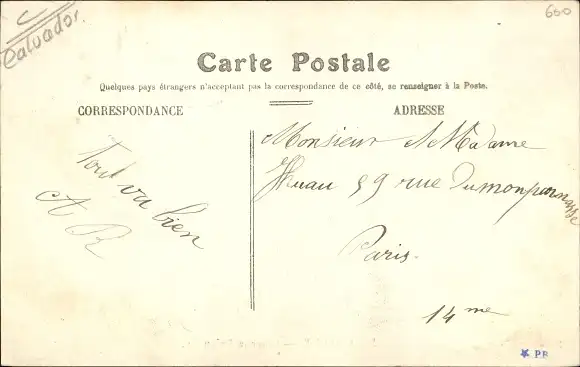 C
Calvados
600
Carte Postale
Quelques pays étrangers n'acceptant pas la correspondance de ce côté, se renseigner à la Poste.
CORRESPONDANCE
ADRESSE
Tout va bien
A R
Monsieur & Madame
59 rue Dumonparnasse
Paris.
14me
PR